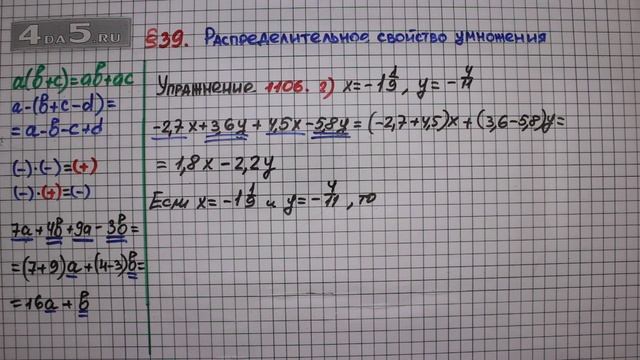 4DA5.RU
§39. Распределительное свойство умножения
a(b+c)=ab+ac
a-(b+c-d)=
=a-b-c+d
(-)·(-)=(+)
(-)·(+)=(-)
7a+4b+9a-3b=
=(7+9)a+(4-3)b=
=16a+b
Упражнение 1106. г) x=-1 1/9, y=-4/11
-2,7x+3,6y+4,5x-5,8y=(-2,7+4,5)x+(3,6-5,8)y=
=1,8x-2,2y
Если x=-1 1/9 и y=-4/11, то